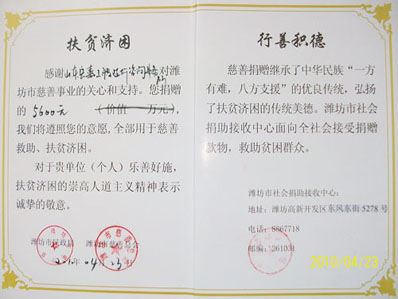 扶贫济困
感谢山东 对潍
坊市慈善事业的关心和支持。您捐赠
的 5600元 (价值 万元),
我们将遵照您的意愿,全部用于慈善
救助、扶贫济困。
对于贵单位(个人)乐善好施,
扶贫济困的崇高人道主义精神表示
诚挚的敬意。
潍坊市民政局 潍坊市慈善总会
行善积德
慈善捐赠继承了中华民族“一方
有难,八方支援”的优良传统,弘扬
了扶贫济困的传统美德。潍坊市社会
捐助接收中心面向全社会接受捐赠
款物,救助贫困群众。
潍坊市社会捐助接收中心:
地址:潍坊高新开发区东风东街5278号
电话:8867718
邮编:261031
2010/04/23